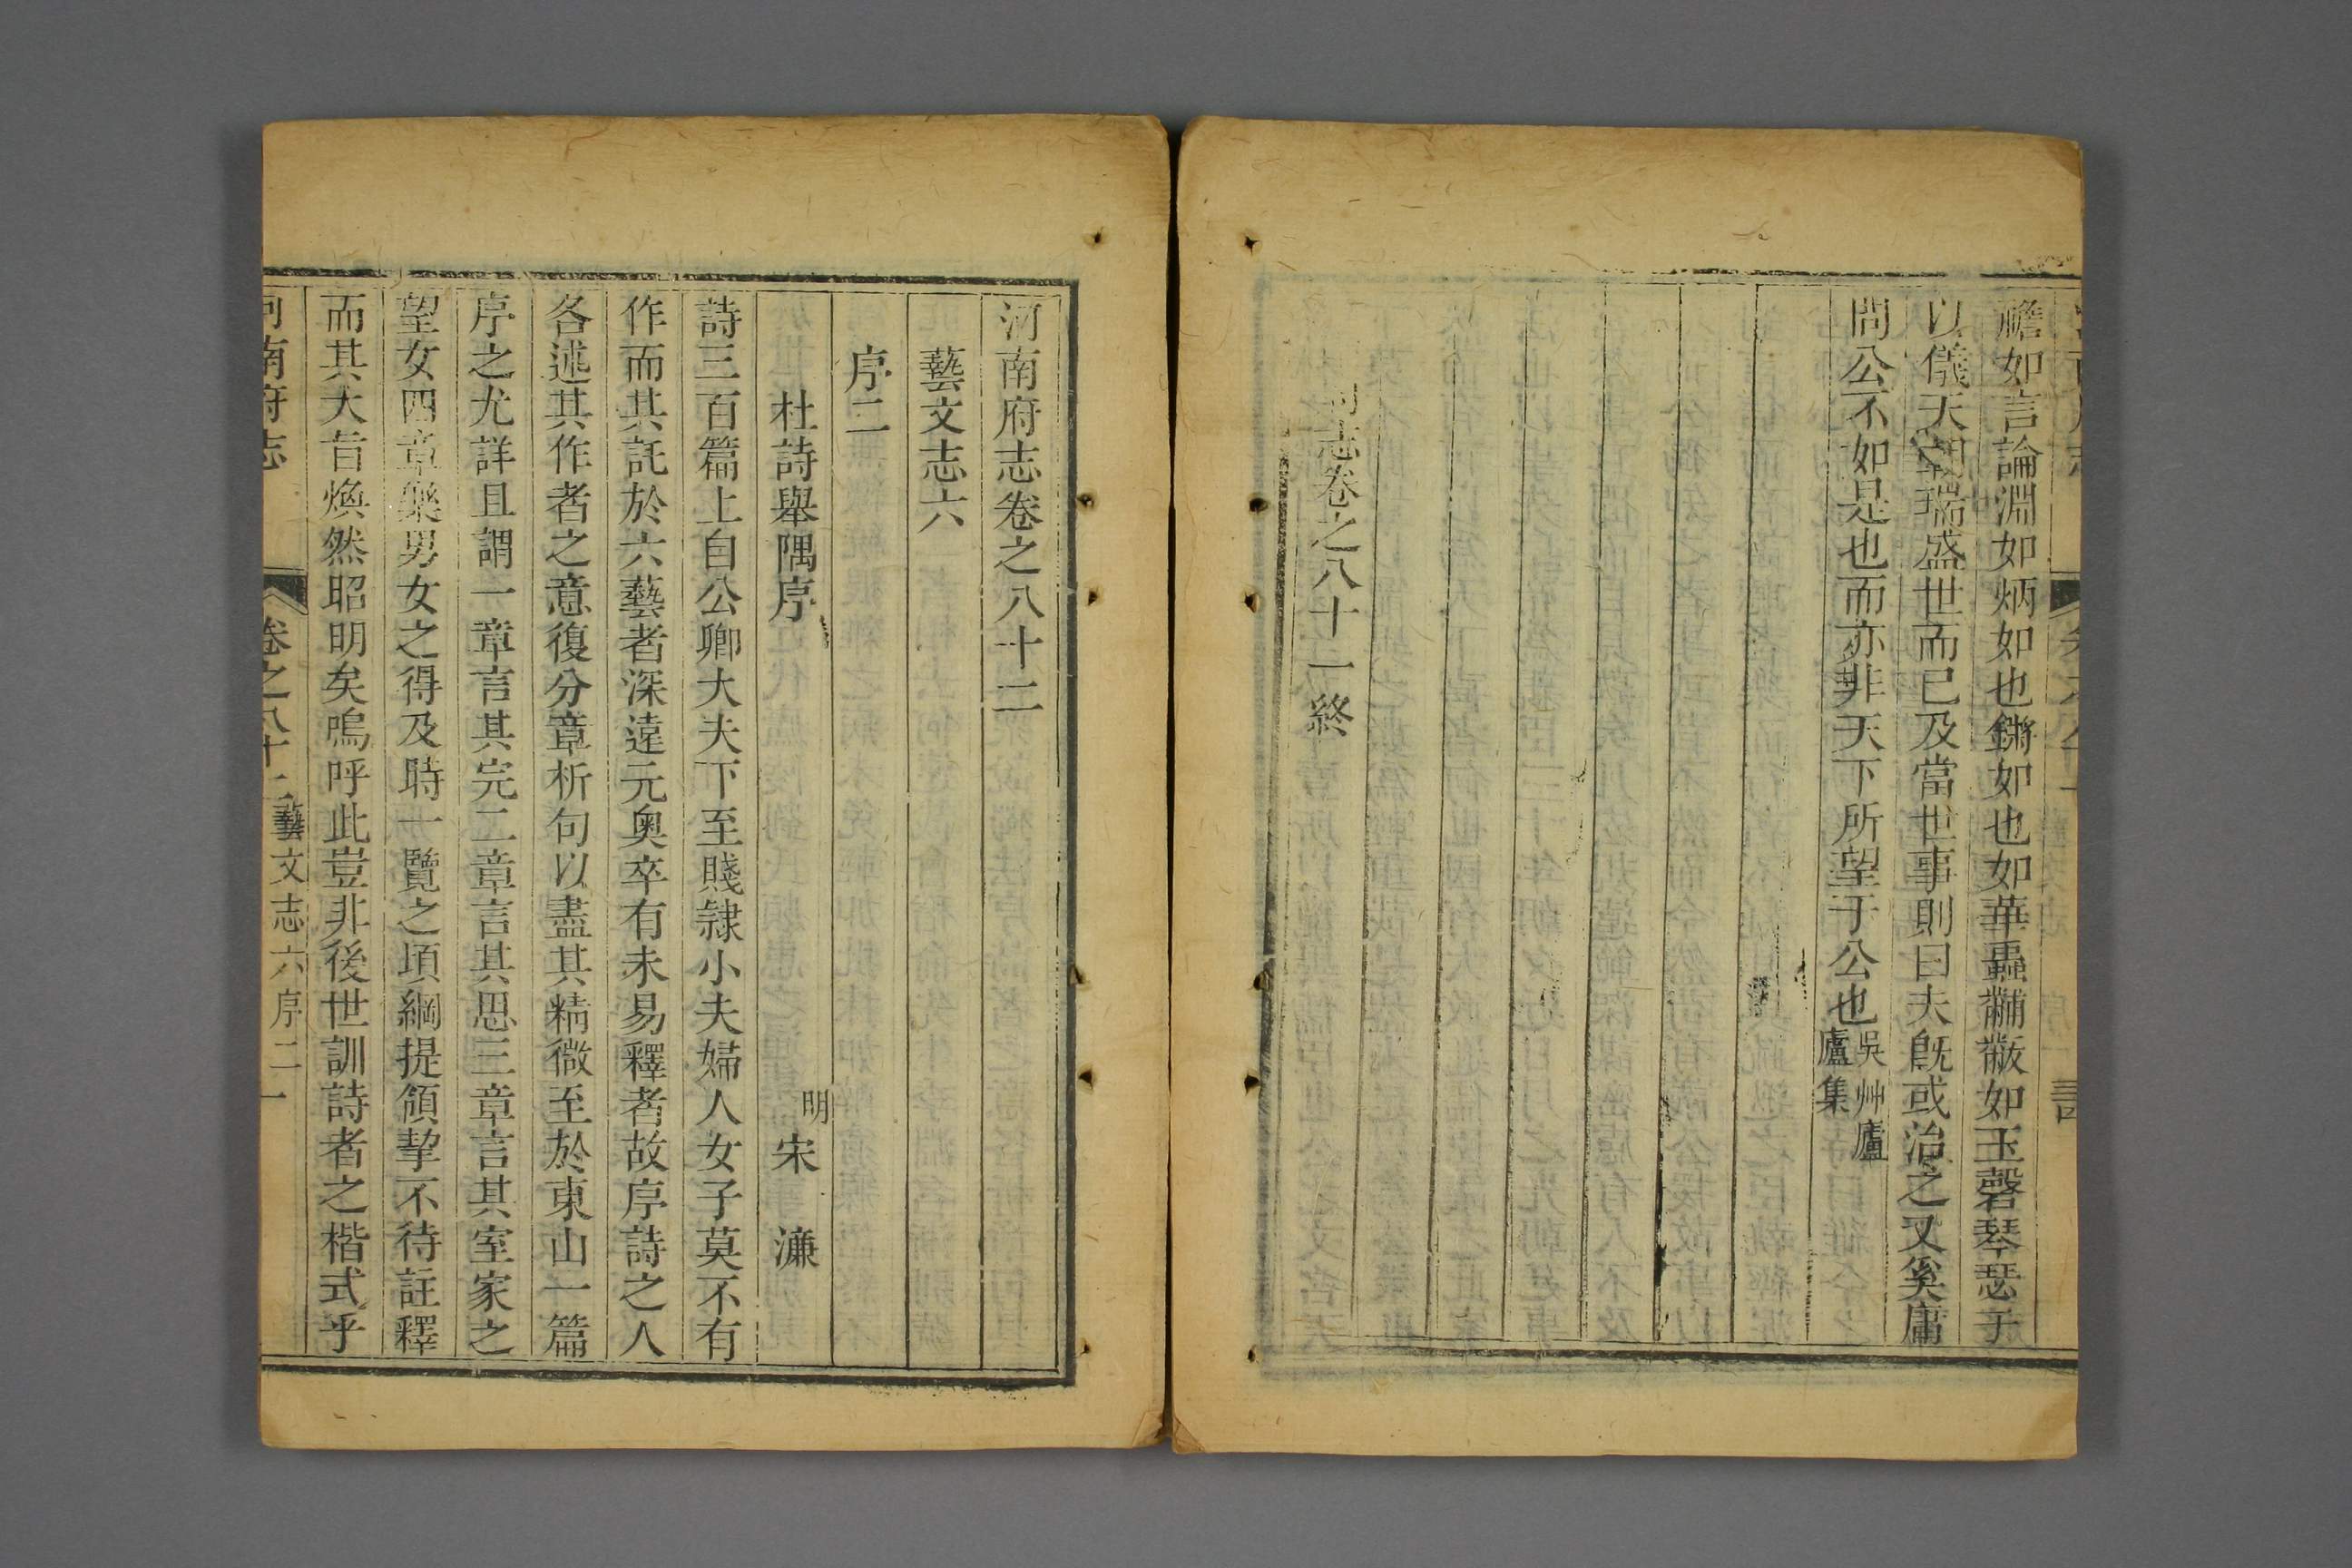 襜如言論淵如炳如也鏘如也如華蟲黼黻如玉磬琴瑟于
以儀天朝瑞盛世而已及當世事則曰夫旣或治之又奚庸
問公不如是也而亦非天下所望于公也吳艸廬
廬集
志卷之八十一終
河南府志卷之八十二
藝文志六
序二
杜詩舉隅序
明宋濂
詩三百篇上自公卿大夫下至賤隷小夫婦人女子莫不有
作而其託於六藝者深遠元奥卒有未易釋者故序詩之人
各述其作者之意復分章析句以盡其精微至於東山一篇
序之尤詳且謂一章言其完二章言其思三章言其室家之
望女四章樂男女之得及時一覽之項綱提領挈不待註釋
而其大旨煥然昭明矣嗚呼此豈非後世訓詩者之楷式乎
河南府志 卷之八十二藝文志六序二 一